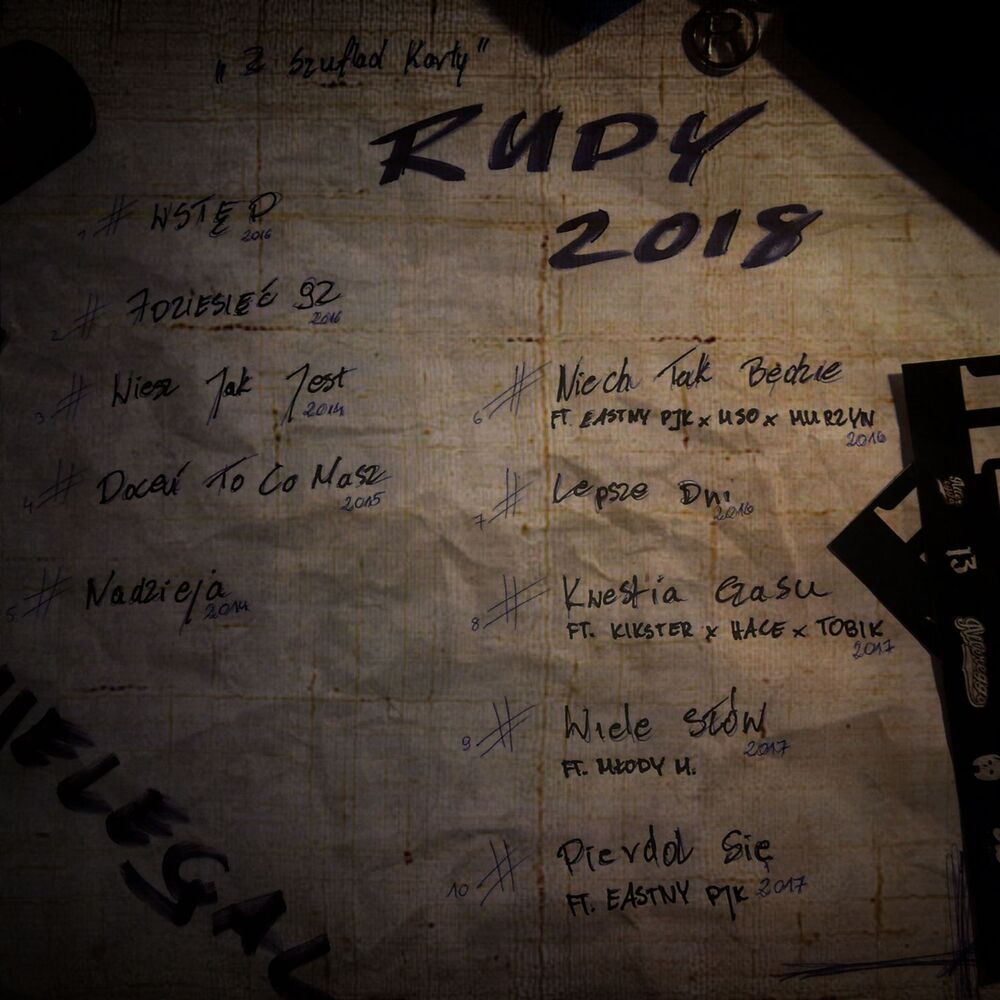 „Z Szuflad Karty”
RUDY
2018
1 # WSTĘP
2016
2 # 7DZIESIĘĆ 92
2016
3 # Wiesz Jak Jest
2014
4 # Doceń To Co Masz
2015
5 # Nadzieja
2014
6 # Niech Tak Będzie
FT. EASTNY PJK x USO x MURZYN
2016
7 # Lepsze Dni
2016
8 # Kwestia Czasu
FT. KIKSTER x HACE x TOBIK
2017
9 # Wiele Słów
2017
FT. MŁODY M.
10 # Pierdol Się
FT. EASTNY PJK 2017
NIELEGAL
13